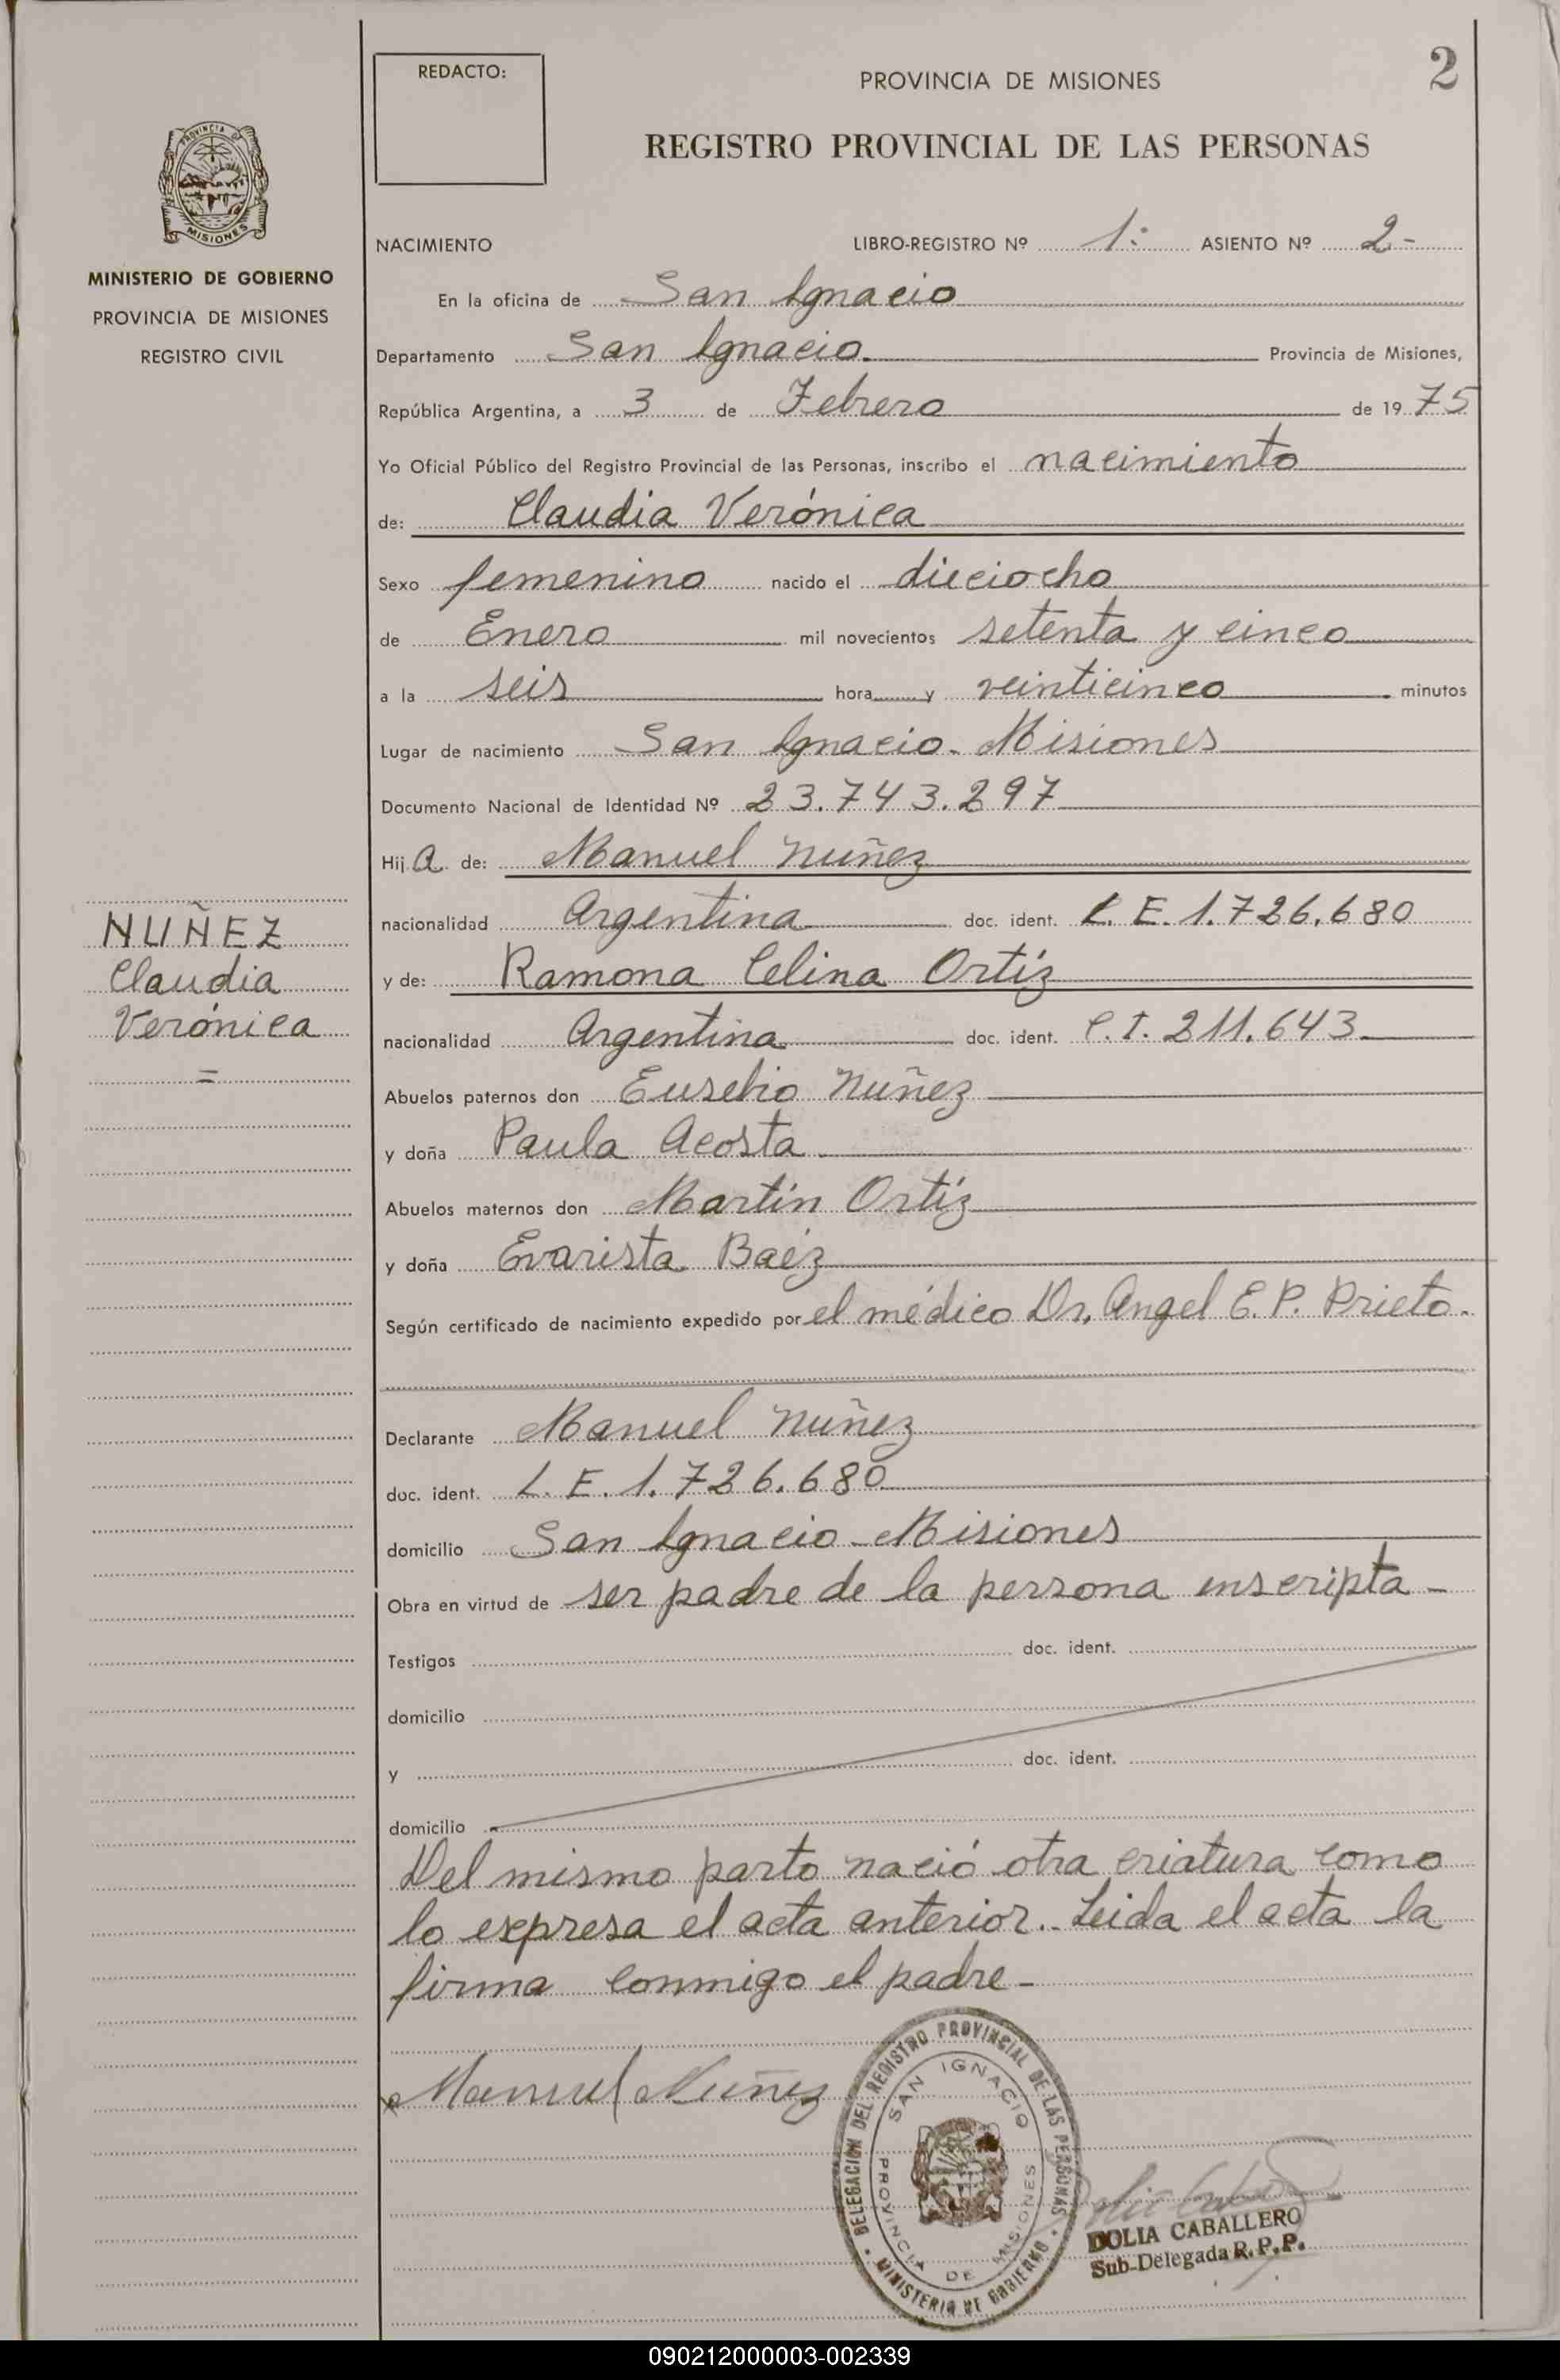 REDACTO:
PROVINCIA DE MISIONES
2
REGISTRO PROVINCIAL DE LAS PERSONAS
PROVINCIA DE
MISIONES
MINISTERIO DE GOBIERNO
PROVINCIA DE MISIONES
REGISTRO CIVIL
NACIMIENTO LIBRO-REGISTRO Nº 1º ASIENTO Nº 2-
En la oficina de San Ignacio
Departamento San Ignacio. Provincia de Misiones,
República Argentina, a 3 de Febrero de 1975
Yo Oficial Público del Registro Provincial de las Personas, inscribo el nacimiento
de: Claudia Verónica
Sexo femenino nacido el dieciocho
de Enero mil novecientos setenta y cinco
a la seis hora y veinticinco minutos
Lugar de nacimiento San Ignacio - Misiones
Documento Nacional de Identidad Nº 23.743.297
Hija de: Manuel Nuñez
nacionalidad Argentina doc. ident. L.E. 1.726.680
y de: Ramona Celina Ortíz
nacionalidad Argentina doc. ident. C.I. 211.643
Abuelos paternos don Eusebio Nuñez
y doña Paula Acosta
Abuelos maternos don Martín Ortíz
y doña Evarista Baéz
Según certificado de nacimiento expedido por el médico Dr. Angel E. P. Prieto.
NUÑEZ
Claudia
Verónica
=
Declarante Manuel Nuñez
doc. ident. L.E. 1.726.680
domicilio San Ignacio - Misiones
Obra en virtud de ser padre de la persona inscripta -
Testigos doc. ident.
domicilio
y doc. ident.
domicilio
Del mismo parto nació otra criatura como
lo expresa el acta anterior.- Leida el acta la
firma conmigo el padre -
Manuel Nuñez
DELEGACION DEL REGISTRO PROVINCIAL DE LAS PERSONAS
SAN IGNACIO
PROVINCIA DE MISIONES
MINISTERIO DE GOBIERNO
DOLIA CABALLERO
Sub-Delegada R.P.P.
090212000003-002339